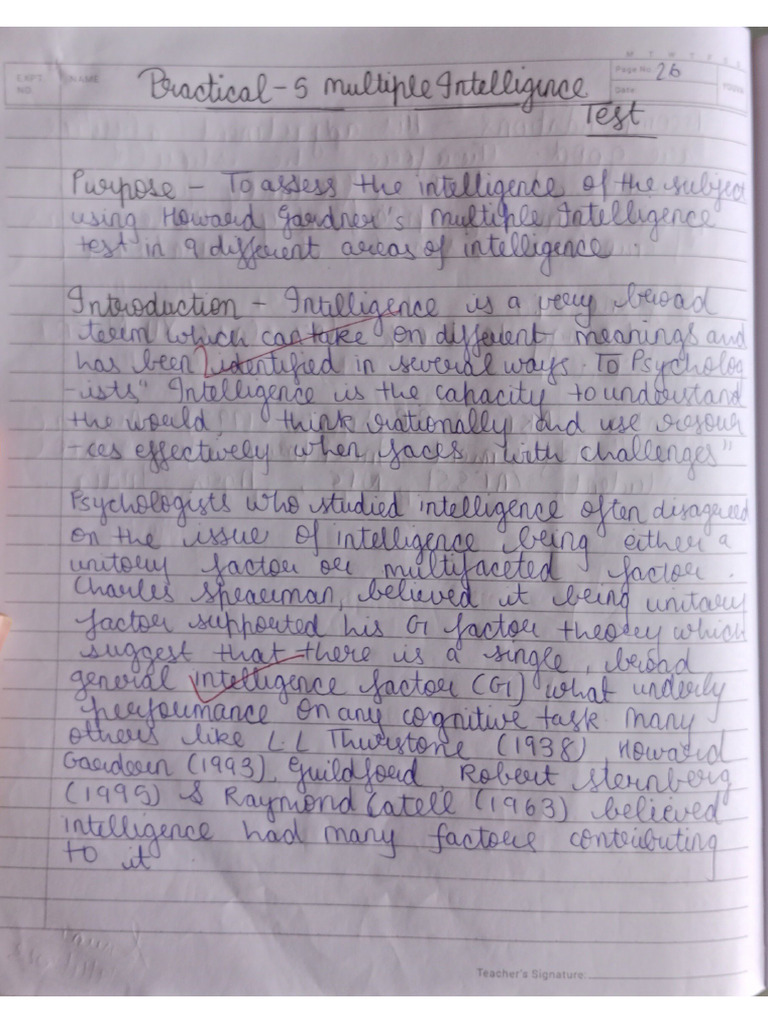 M T W T F S S
EXPT. NO. NAME Practical - 5 Multiple Intelligence Page No. 26
Date: YOUVA
Test
Purpose - To assess the intelligence of the subject
using Howard Gardner's Multiple Intelligence
test in 9 different areas of intelligence.
Introduction - Intelligence is a very broad
term which can take on different meanings and
has been identified in several ways. To Psycholog
-ists " Intelligence is the capacity to understand
the world, think rationally and use resour
-ces effectively when faces with challenges"
Psychologists who studied intelligence often disagreed
on the issue of intelligence being either a
unitary factor or multifaceted factor.
Charles Spearman, believed it being unitary
factor supported his G factor theory which
suggest that there is a single, broad
general intelligence factor (G) what underly
performance on any cognitive task many
others like L.L Thurstone (1938), Howard
Gaerdern (1993), Guildford, Robert Sternberg
(1995) & Raymond Catell (1963) believed
intelligence had many factors contributing
to it
Teacher's Signature: